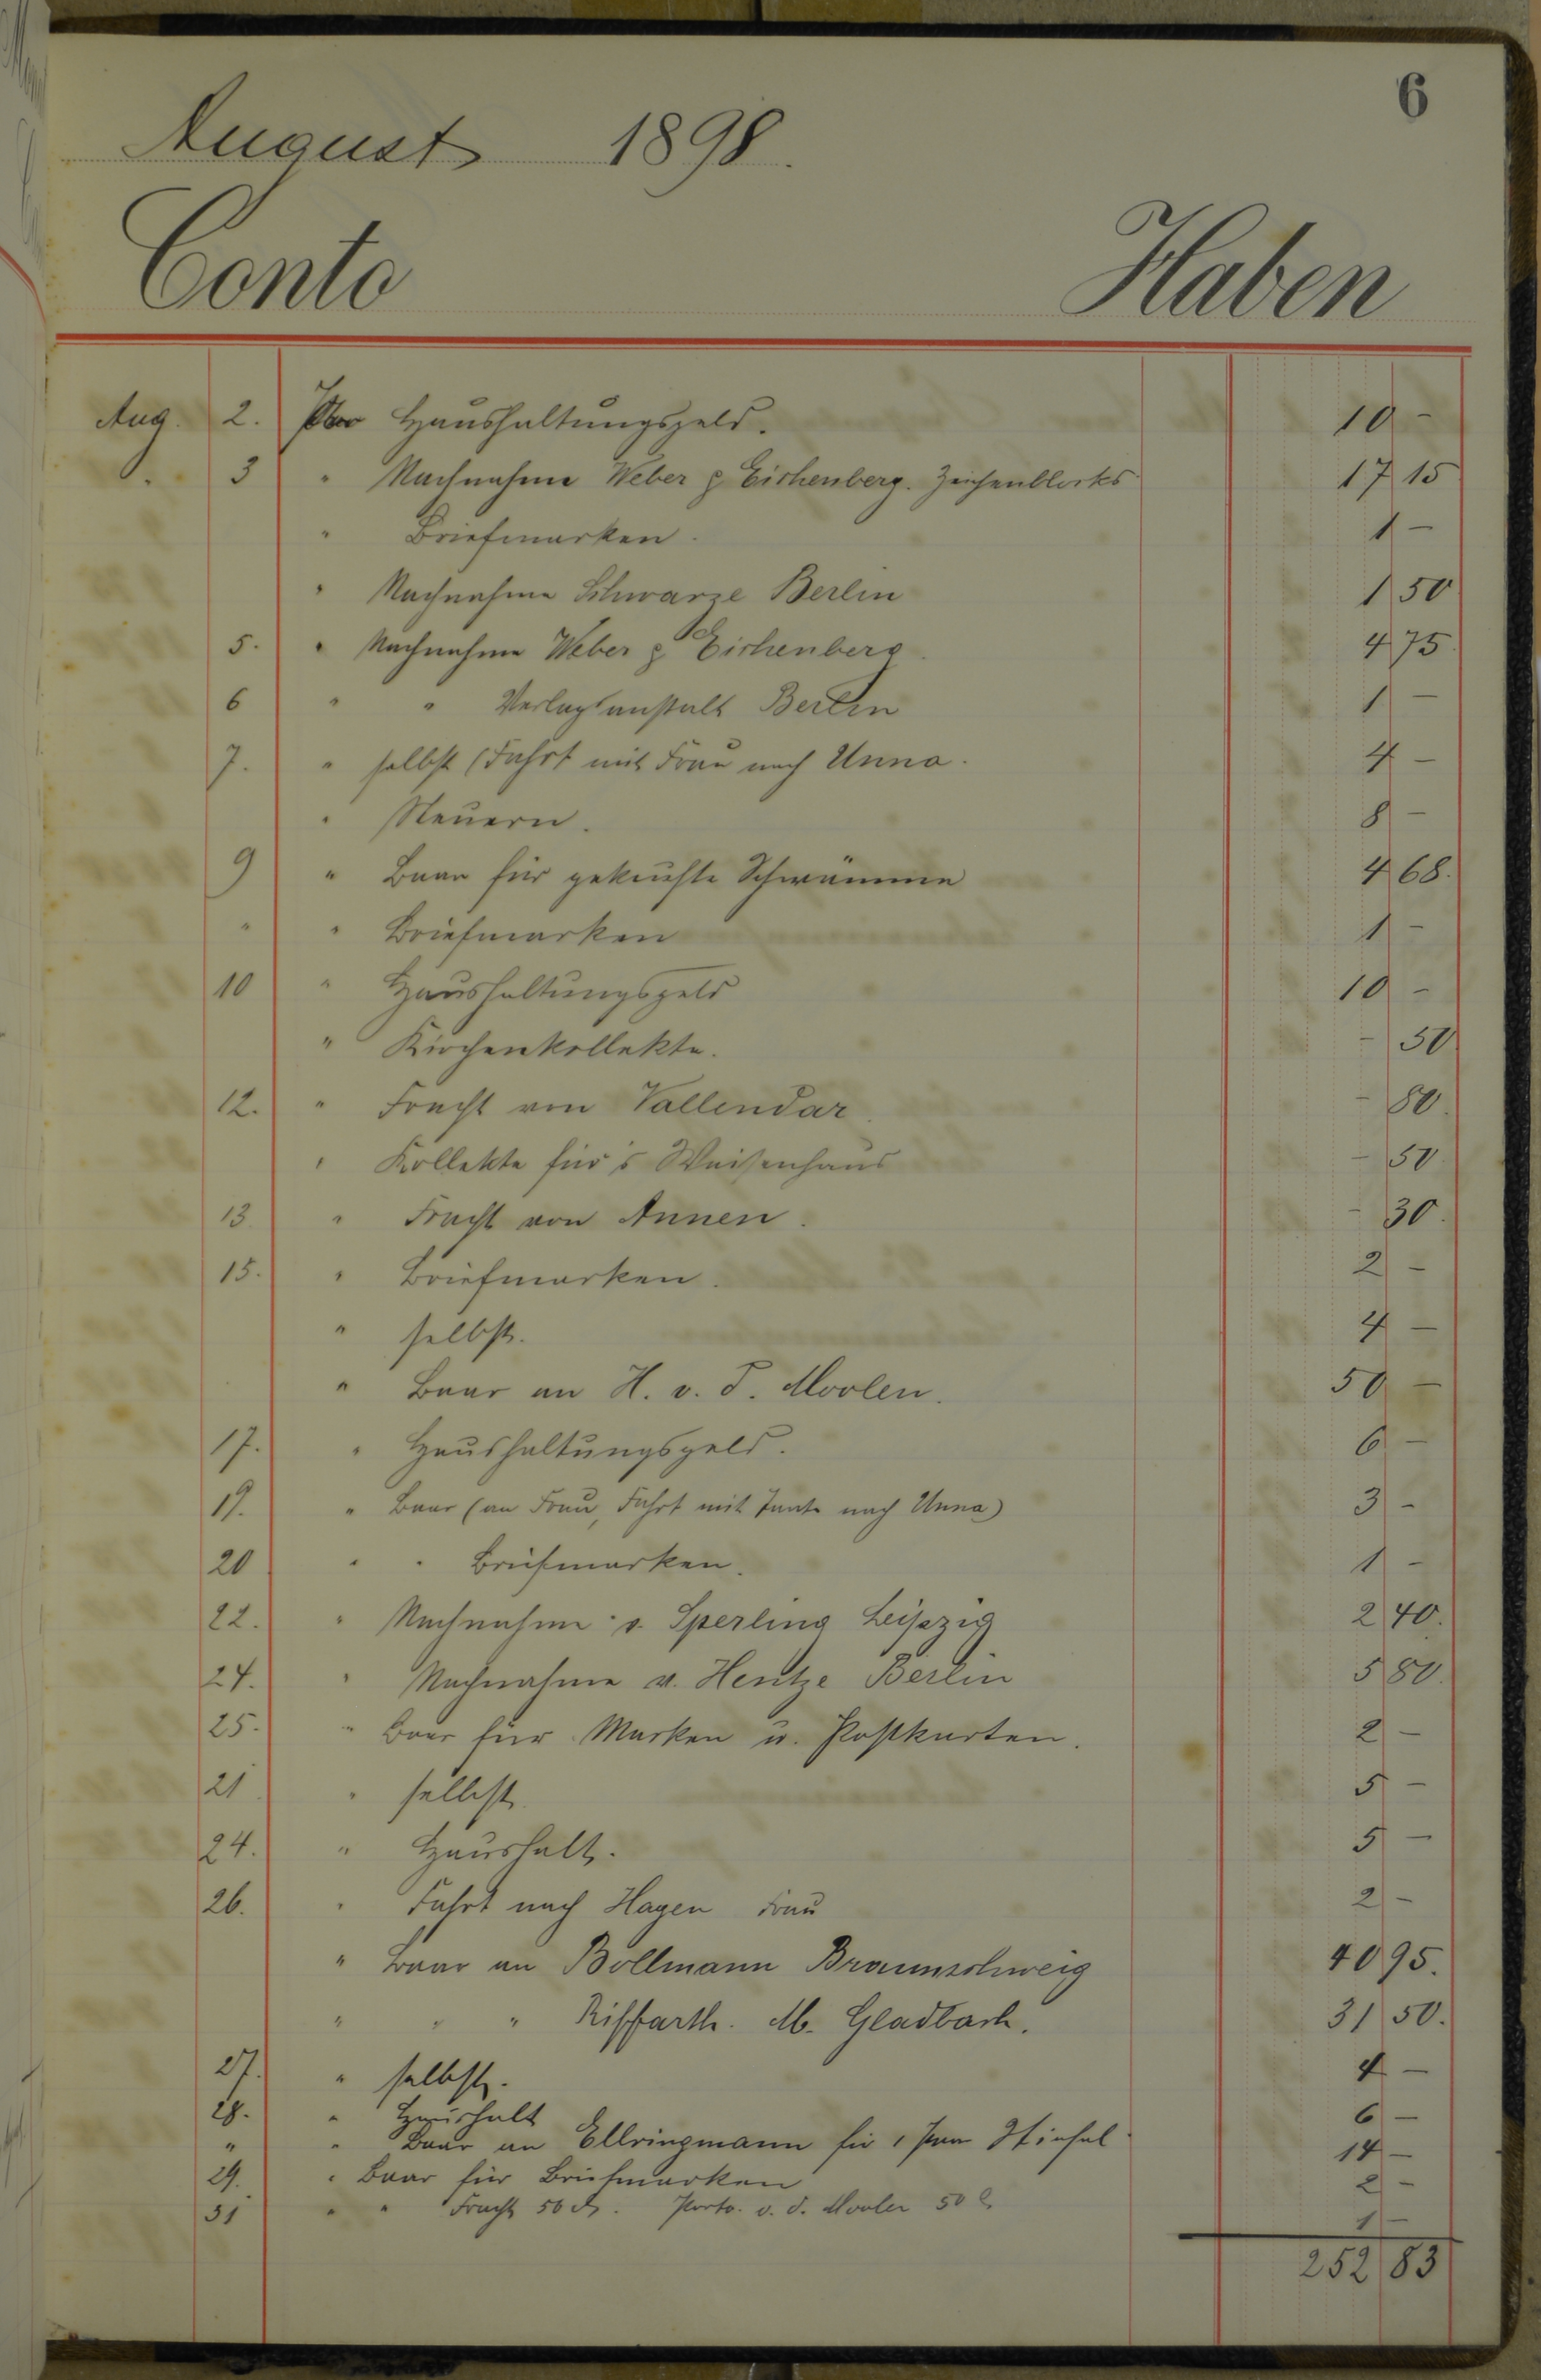 6
August 1898.
Conto Haben
Aug. 2. Per Haushaltungsgeld. 10 -
3 " Nachnahme Weber & Eichenberg. Zeichenblocks 17 15
" Briefmarken. 1 -
" Nachnahme Schwarze Berlin 1 50
5. " Nachnahme Weber & Eichenberg. 4 75
6 " " Verlagsanstalt Berlin 1 -
7. " selbst (Fahrt mit Frau nach Unna. 4 -
" Steuern. 8 -
9 " Baar für gekaufte Schwämme 4 68.
" " Briefmarken 1 -
10 " Haushaltungsgeld 10 -
" Kirchenkollekte. - 50
12. " Fracht von Vallendar. - 80.
" Kollekte für's Waisenhaus - 50.
13. " Fracht von Annen. - 30.
15. " Briefmarken. 2 -
" selbst. 4 -
" Baar an H. v. d. Moolen. 50 -
17. " Haushaltungsgeld. 6 -
19. " Baar (an Frau, Fahrt mit Tante nach Unna) 3 -
20 " " Briefmarken. 1 -
22. " Nachnahme v. Sperling Leipzig 2 40.
24. " Nachnahme v. Hentze Berlin 5 80.
25. " Baar für Marken u. Postkarten. 2 -
21 " selbst. 5 -
24. " Haushalt. 5 -
26. " Fahrt nach Hagen Frau 2 -
" Baar an Bollmann Braunschweig 40 95.
" " " Riffarth. M. Gladbach. 31 50.
27. " selbst. 4 -
28. " Haushalt 6 -
" " Baar an Ellringmann für 1 Paar Stiefel 14 -
29. " Baar für Briefmarken 2 -
31 " " Fracht 50 Porto. v. d. Mooler 50 1 -
252 83